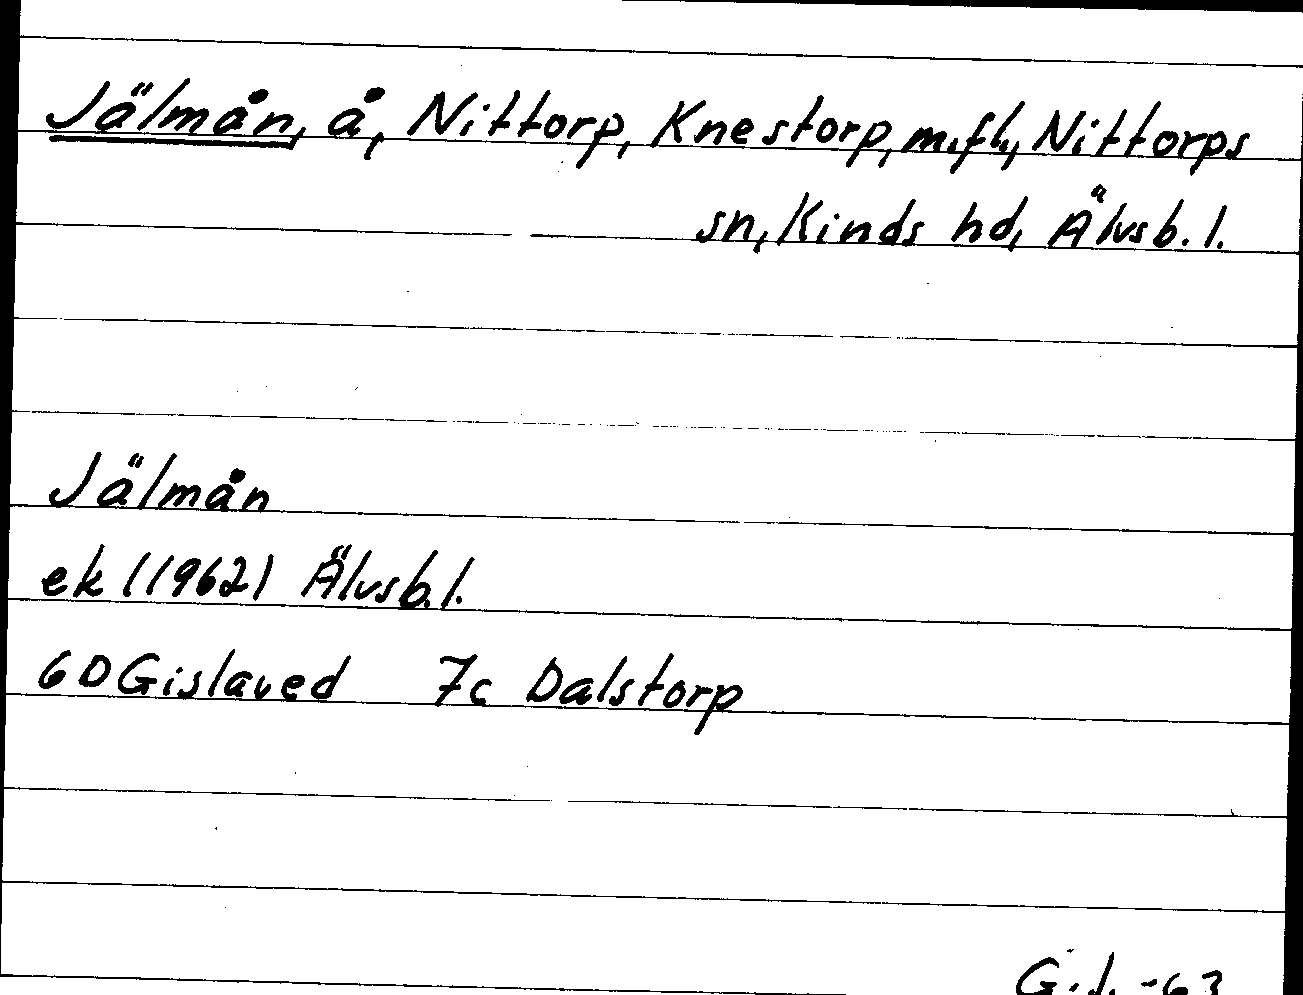 Jälmån, å, Nittorp, Knestorp, m.fl., Nittorps
sn, Kinds hd, Älvsb. l.
Jälmån
ek (1962) Älvsb. l.
6D Gislaved 7c Dalstorp